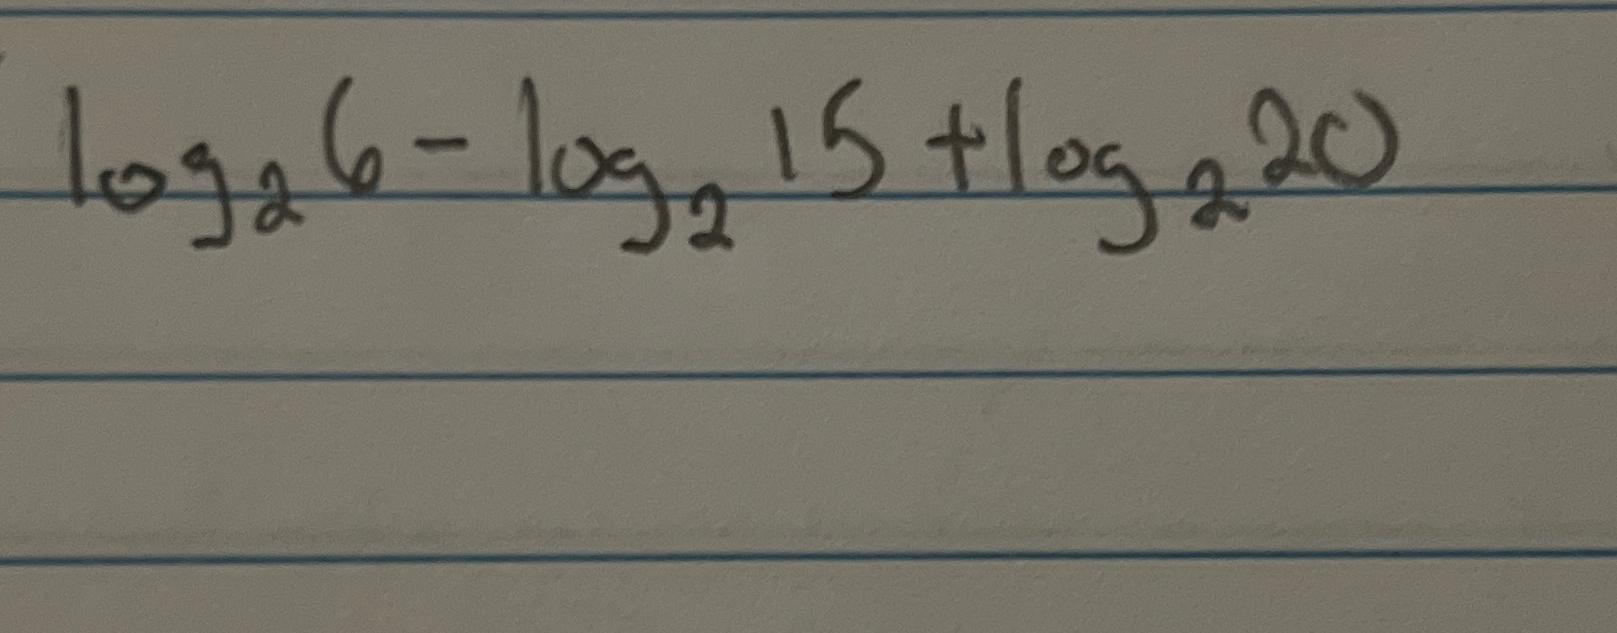 log₂6 - log₂15 + log₂20